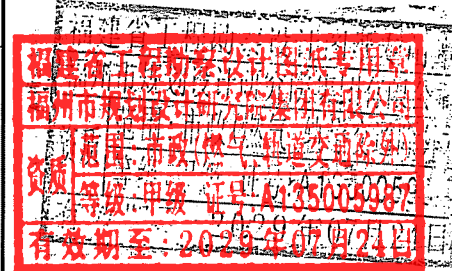 福建省工程勘察设计图纸专用章
福州市规划设计研究院集团有限公司
资质
范围:市政(燃气、轨道交通除外)
等级:甲级 证号:A135005987
有效期至:2029年07月24日